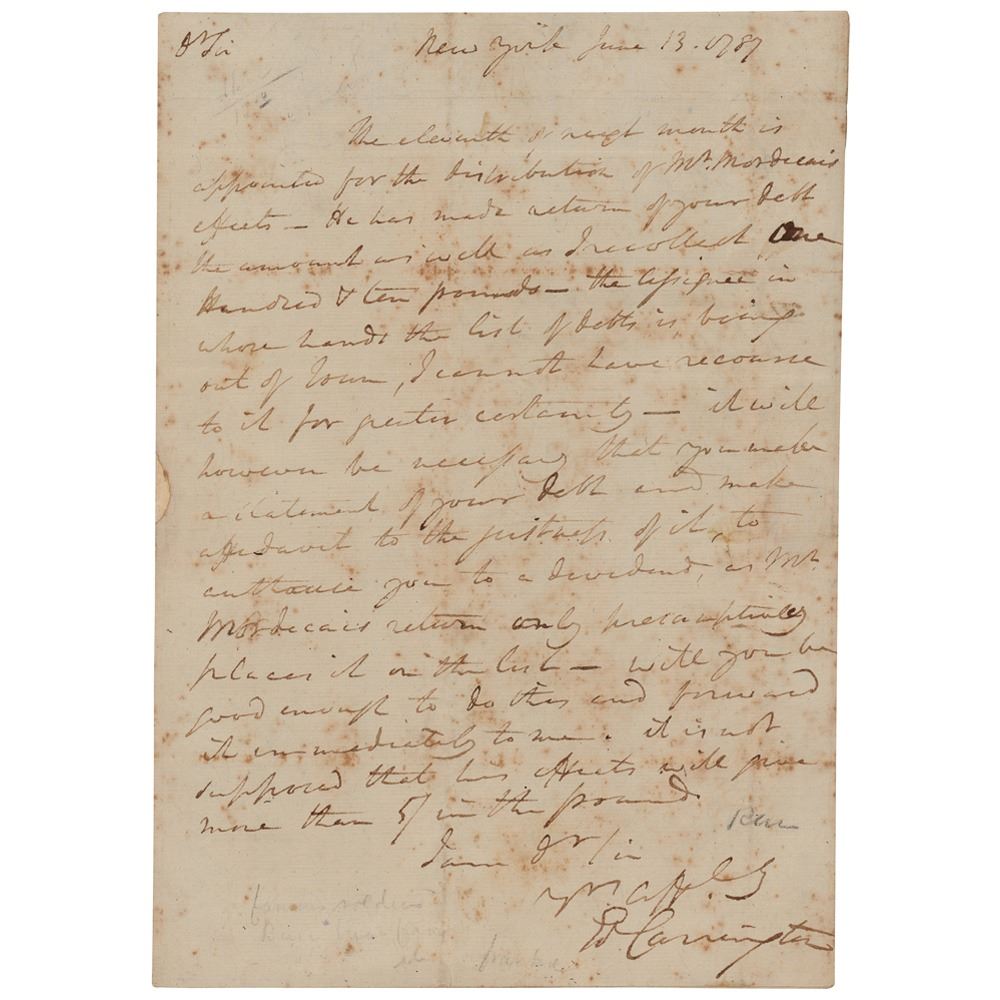 Dr Sir
New York June 13. 1787
The eleventh of next month is
appointed for the distribution of Mr. Mordecais
effects — He has made return of your debt
the amount as well as I recollect, One
Hundred & ten pounds — the Assignee in
whose hands the list of debts is being
out of Town, I cannot have recourse
to it for greater certainty — it will
however be necessary that you make
a statement of your debt and make
affidavit to the justness of it, to
authorise you to a dividend, as Mr.
Mordecais return only presumptively
places it on the list — will you be
good enough to do this and forward
it immediately to me. it is not
supposed that his effects will give
more than 5/ in the pound.
I am Dr Sir
Yr. Aff. S
Ed. Carrington
famous soldier